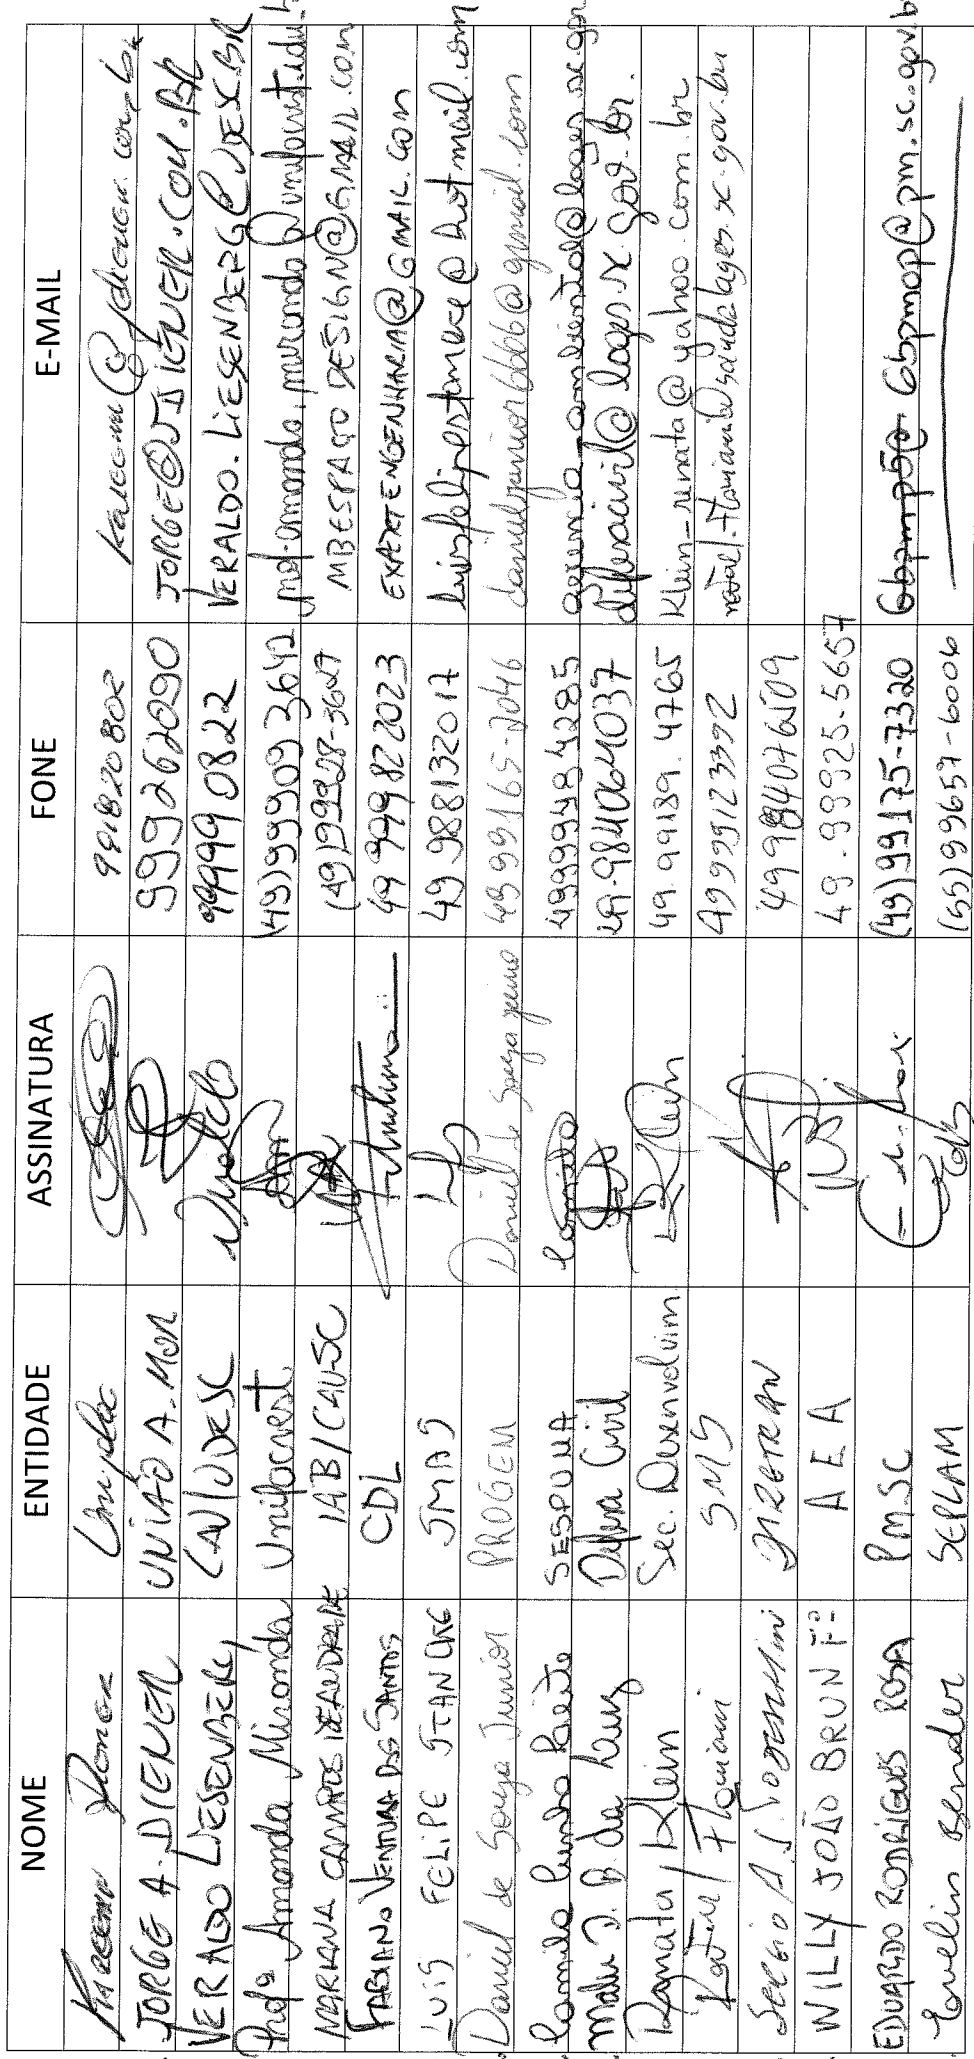 NOME ENTIDADE ASSINATURA FONE E-MAIL
Diener 991820802
JORGE A. DIENER UNIÃO A. MOR 999262090 JORGE@JJDIENER.COM.BR
VERALDO LIESENBERG CAV/UDESC 99999 0822 VERALDO.LIESENBERG@UDESC.BR
Profª Amanda Miranda Unifacvest (49)999093642
MARIANA CAMPOS DE ANDRADE IAB/CAU-SC (49)99928-3627 MBESPACO DESIGN@GMAIL.COM
FABIANO VENTURA DOS SANTOS CDL 49 999822023 EXATTENGENHARIA@GMAIL.COM
LUIS FELIPE SMAS 49 988132017
Daniel de Souza Junior PROGEM Daniel de Souza Junior 49 99165-2046 danieljunior6666@gmail.com
Camila SESPUMA Camila 49999484285 gerencia_ambiental@lages.sc.gov
Malu D. B. da Luz Defesa Civil 49-984064037 defesacivil@lages.sc.gov.br.
Renata Klein Sec. Desenvolvim R Klein 49.99189.4765 Klein_renata@yahoo.com.br
Floriani SMS 49999123392
Sergio A. DIRETRAN 49984076509
WILLY JOÃO BRUN Fº A E A 49.99925-5657
EDUARDO RODRIGUES ROSA PMSC (49)99175-7320 6bpmop@pm.sc.gov.b
Evelin Bender SEPLAM (55)99657-6006